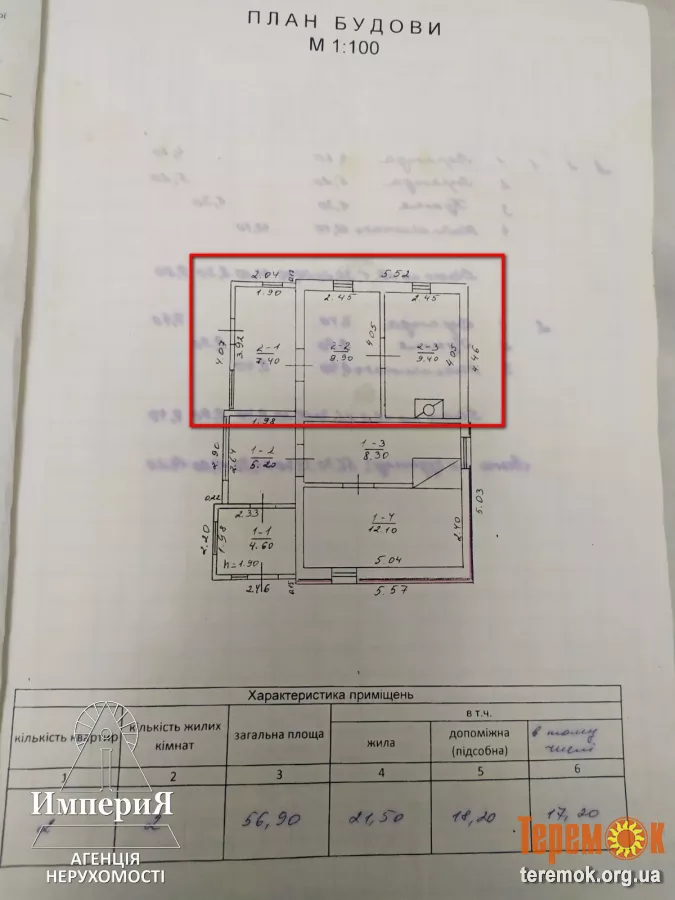 ПЛАН БУДОВИ
М 1:100
2.04
5.52
1.90
2.45
2.45
4.07
3.92
2-1
7.40
2-2
9.90
4.05
2-3
9.40
4.05
4.46
1.98
2.90
2.64
1-2
5.20
1-3
8.30
0.22
2.33
2.20
1.98
1-1
4.60
h=1.90
1-4
12.10
2.40
5.03
5.04
2.46
5.57
Характеристика приміщень
кількість квартир
кількість жилих кімнат
загальна площа
в т.ч.
жила
допоміжна (підсобна)
в тому числі
1 2 3 4 5 6
2 56,90 21,50 18,20 17,20
ИмпериЯ
АГЕНЦІЯ
НЕРУХОМОСТІ
Теремок
teremok.org.ua